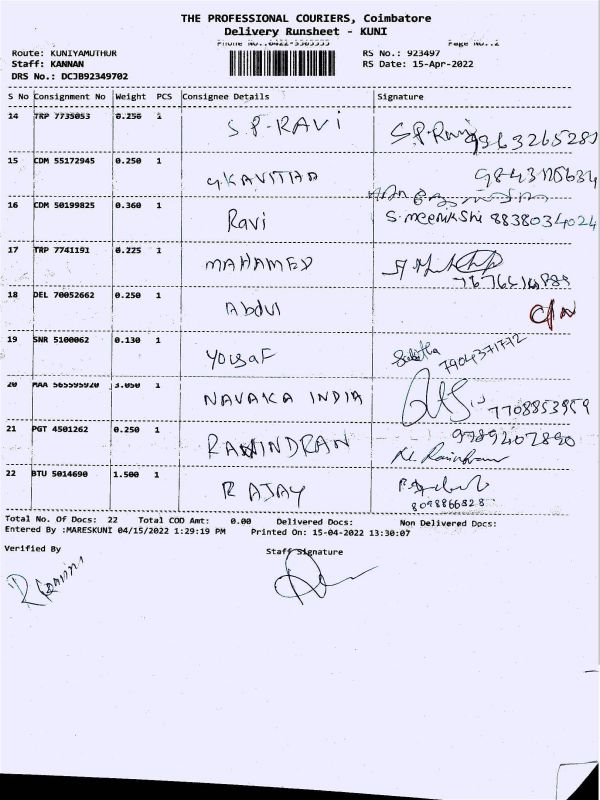 THE PROFESSIONAL COURIERS, Coimbatore
Delivery Runsheet - KUNI
Phone No.:0422-3363333 Page No.:2
Route: KUNIYAMUTHUR RS No.: 923497
Staff: KANNAN RS Date: 15-Apr-2022
DRS No.: DCJB92349702
S No Consignment No Weight PCS Consignee Details Signature
14 TRP 7735053 0.250 1 S.P-RAVI S.P.Ravi
15 CDM 55172945 0.250 1 G.KAVITHA
16 CDM 50199825 0.360 1 Ravi S.meenakshi 8838034024
17 TRP 7741191 0.225 1 MAHAMED
18 DEL 70052662 0.250 1 Abdul C/N
19 SNR 5100062 0.130 1 YOUSAF 7904371772
20 MAA 565595920 3.050 1 NAVAKA INDIA 7708853959
21 PGT 4501262 0.250 1 RAVINDRAN 9789207890
22 BTU 5014690 1.500 1 R AJAY
Total No. Of Docs: 22 Total COD Amt: 0.00 Delivered Docs: Non Delivered Docs:
Entered By :MARESKUNI 04/15/2022 1:29:19 PM Printed On: 15-04-2022 13:30:07
Verified By Staff Signature